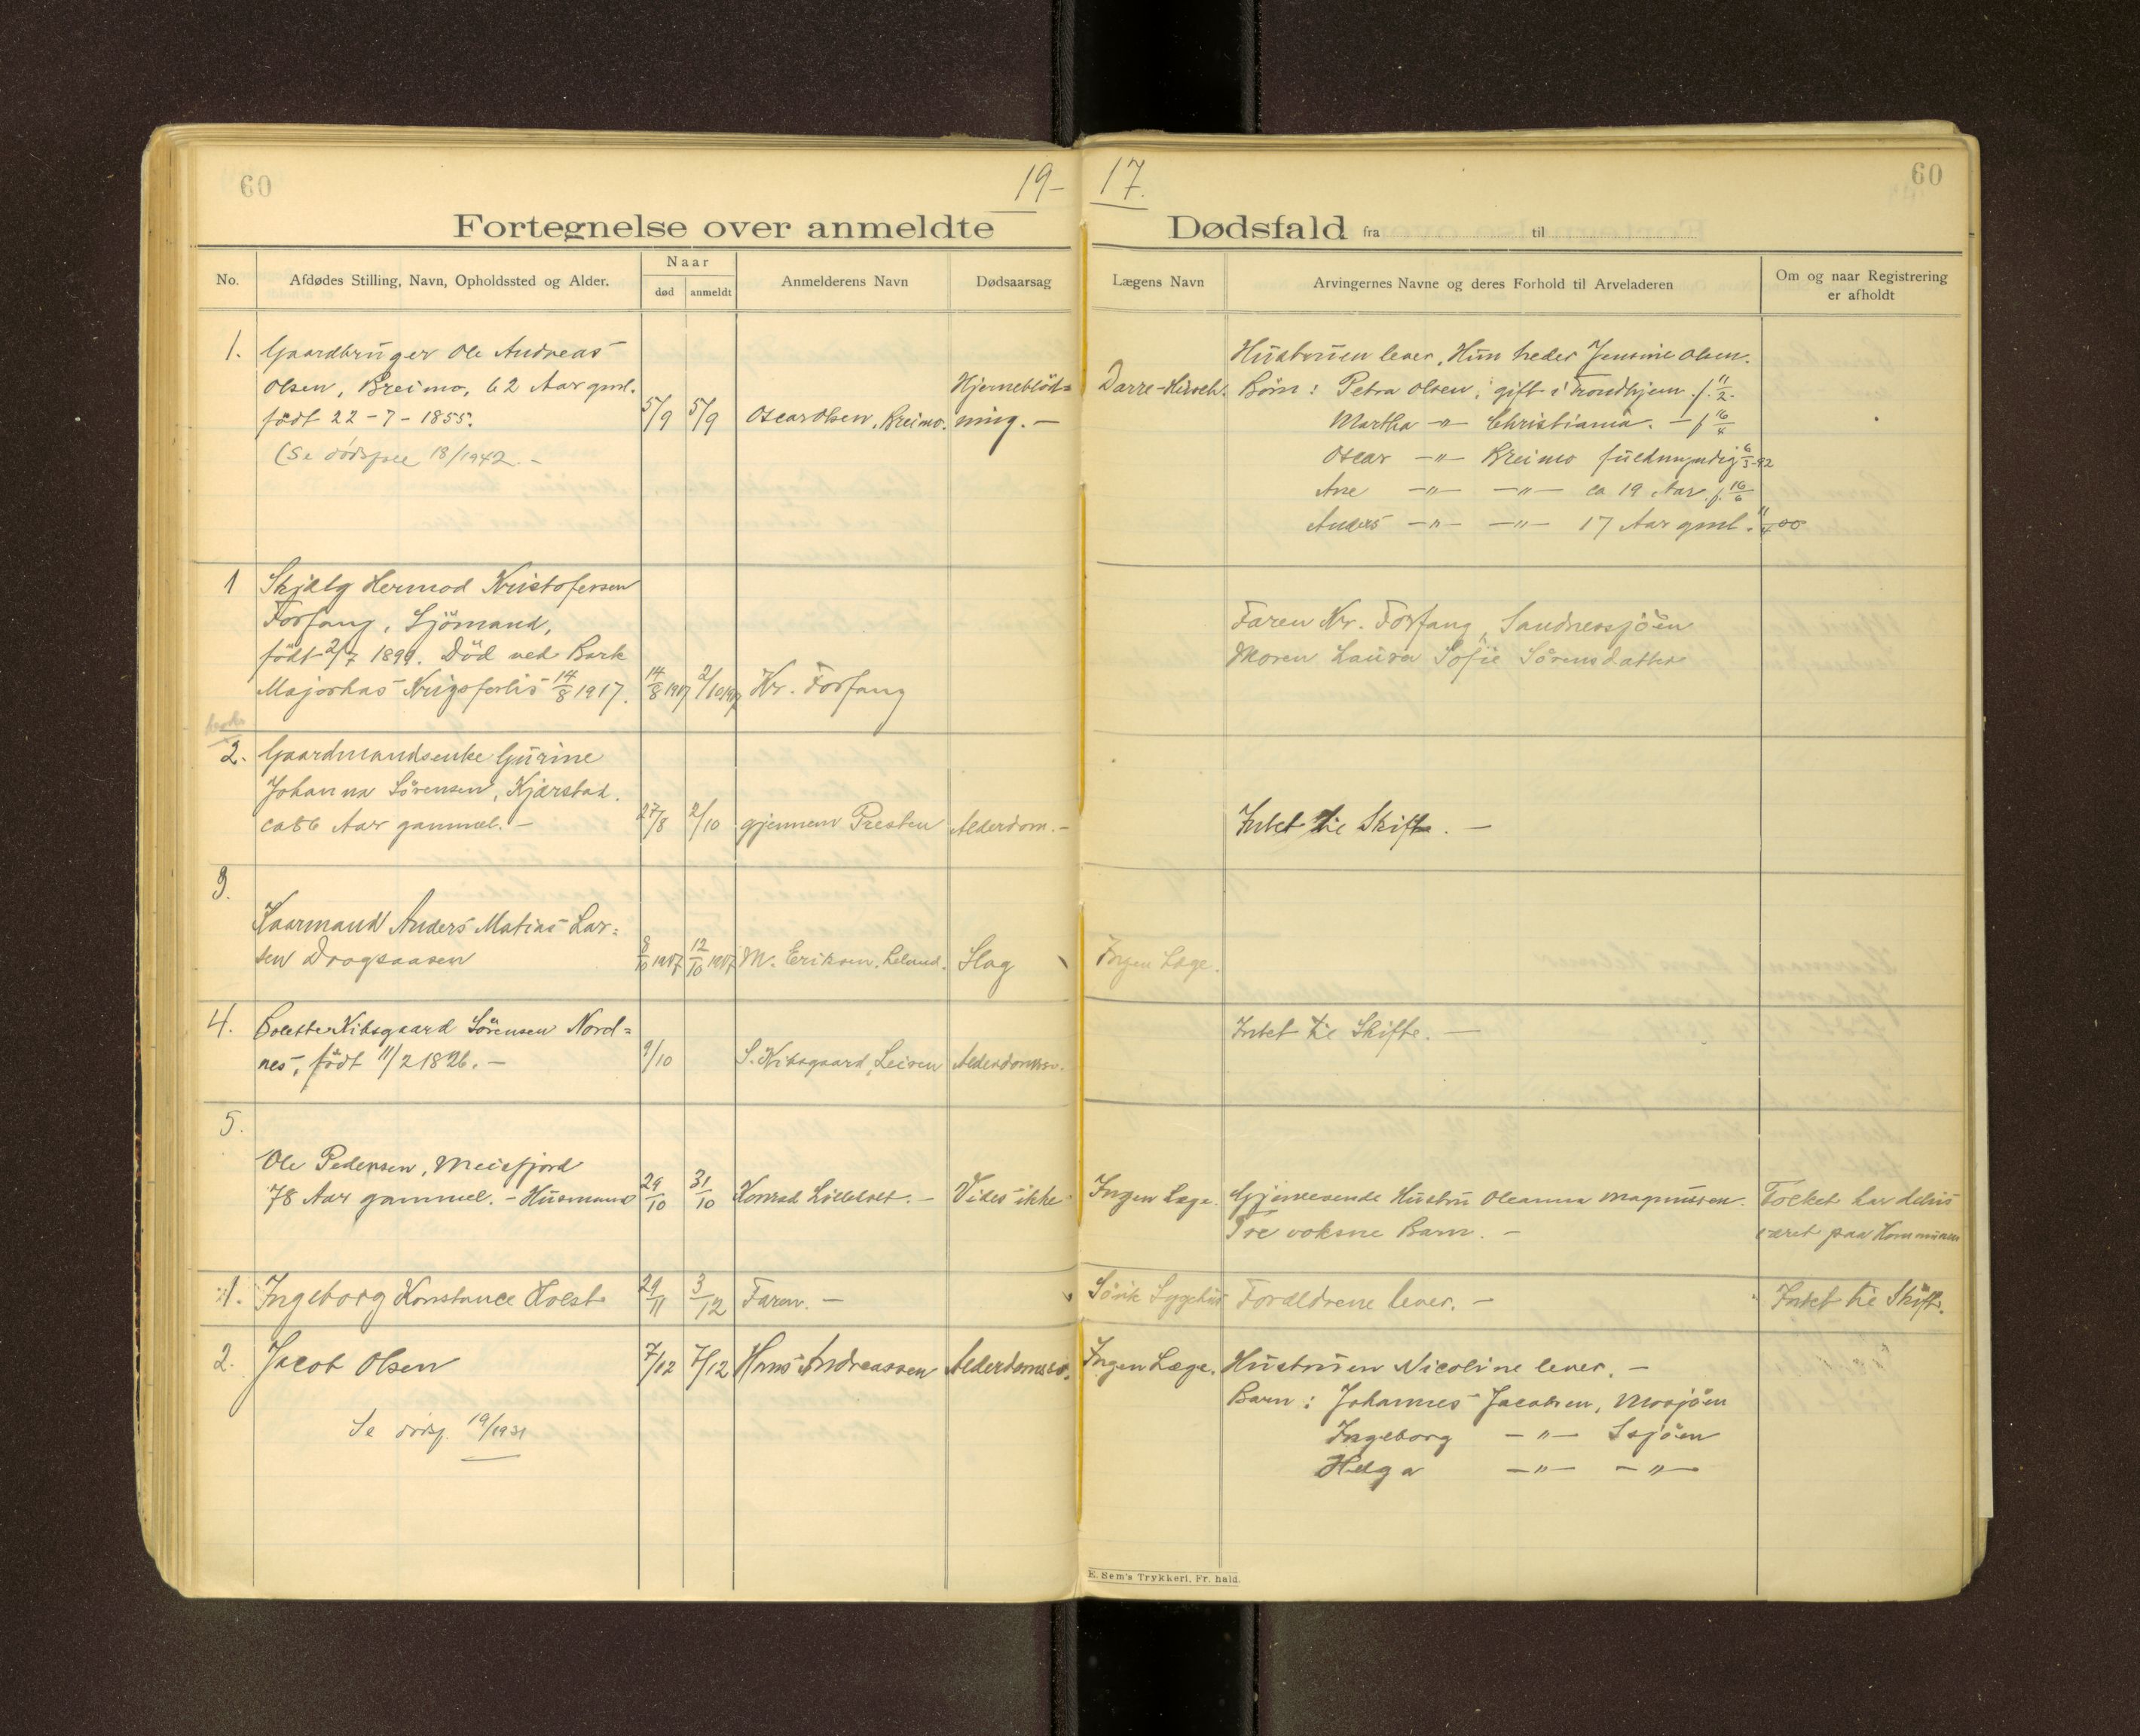 60
19-
17.
60
Fortegnelse over anmeldte
Dødsfald fra til
No.
Afdødes Stilling, Navn, Opholdssted og Alder.
Naar
død
anmeldt
Anmelderens Navn
Dødsaarsag
Lægens Navn
Arvingernes Navne og deres Forhold til Arveladeren
Om og naar Registrering
er afholdt
1. Gaardbruger Ole Andreas
Olsen, Breimo, 62 Aar gml.
født 22-7-1855.
(Se dødsfall 18/1942.-
5/9 5/9 Oscar Olsen, Breimo.
Hjerneblöd=
ning. -
Darre-Hirsch.
Hustruen lever, Hun heder Jensine Olsen.
Børn: Petra Olsen, gift i Trondhjem f. 11/2.
Martha -"- Christiania. - f 16/4
Oscar -"- Breimo fuldmyndig 6/3-92
Ane -"- -"- ca 19 Aar f. 16/6
Anders -"- -"- 17 Aar gml. 11/4 00
1 Skjalg Hermod Kristofersen
Forfang, Sjömand,
født 2/7 1899. Död ved Bark
Majorkas Krigsforlis 14/8 1917.
14/8 1917 2/10 1917 Kr. Forfang
Faren Kr. Forfang, Sandnessjöen
Moren Laura Sofie Sørensdatter
2. Gaardmandsenke Gurine
Johanna Sörensen, Kjærstad.
ca 86 Aar gammel. -
27/8 2/10 gjennem Presten Alderdom. -
Intet til Skifte. -
3.
Kaarmand Anders Matias Lar=
sen Dragsaasen
8/10 1917 12/10 1917 M. Eriksen, Leland. Slag
Ingen Læge.
4. Bolette Kibsgaard Sörensen Nord=
nes, født 11/2 1826. -
9/10 S. Kibsgaard, Leiren Alderdomssv.
Intet til Skifte. -
5.
Ole Pedersen, Meisfjord
78 Aar gammel. - Husmand
29/10 31/10 Konrad Lillebolt. - Vides ikke
Ingen Læge. Gjenlevende Hustru Oleanna Magnussen.
Tre voksne Barn. -
Folket har delvis
været paa Kommunen
1. Ingeborg Konstance Holst 29/11 3/12 Faren. -
Forældrene lever. - Intet til Skifte.
2. Jacob Olsen 7/12 7/12 Hans Andreassen Alderdomssv.
Se dødsf. 19/1931
Ingen Læge. Hustruen Nicoline lever. -
Barn: Johannes Jacobsen, Mosjöen
Ingeborg -"- Ssjöen
Helga -"- -"-
E. Sem's Trykkeri, Fr. hald.